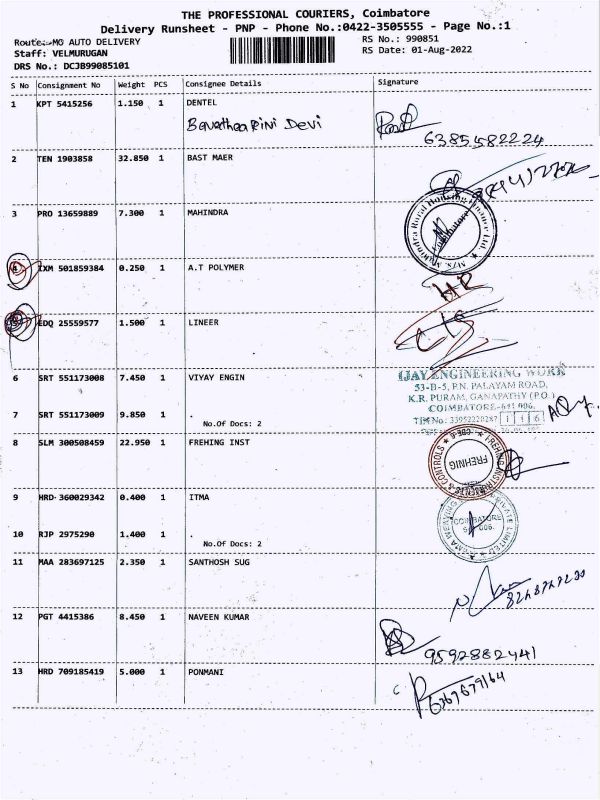 THE PROFESSIONAL COURIERS, Coimbatore
Delivery Runsheet - PNP - Phone No.:0422-3505555 - Page No.:1
Route: MO AUTO DELIVERY
RS No.: 990851
Staff: VELMURUGAN
RS Date: 01-Aug-2022
DRS No.: DCJB99085101
S No Consignment No Weight PCS Consignee Details Signature
1 KPT 5415256 1.150 1 DENTEL
Devi
6385582224
2 TEN 1903858 32.850 1 BAST MAER
3 PRO 13659889 7.300 1 MAHINDRA
Rural Housing Finance Ltd.
Coimbatore
4 IXM 501859384 0.250 1 A.T POLYMER
HR
5 EDQ 25559577 1.500 1 LINEER
6 SRT 551173008 7.450 1 VIYAY ENGIN
IJAY ENGINEERING WORK
53-B-5, P.N. PALAYAM ROAD,
K.R. PURAM, GANAPATHY (P.O.)
COIMBATORE-641 006.
7 SRT 551173009 9.850 1 .
No.Of Docs: 2
TIN No: 33952220287 116
8 SLM 300508459 22.950 1 FREHING INST
FREHNIG INSTRUMENTS & CONTROLS
CBE-6
FREHNIG
9 HRD 360029342 0.400 1 ITMA
COIMBATORE
641 006.
WEAVING PRIVATE LIMITED
10 RJP 2975290 1.400 1 .
No.Of Docs: 2
11 MAA 283697125 2.350 1 SANTHOSH SUG
12 PGT 4415386 8.450 1 NAVEEN KUMAR
9592882441
13 HRD 709185419 5.000 1 PONMANI
6367679164